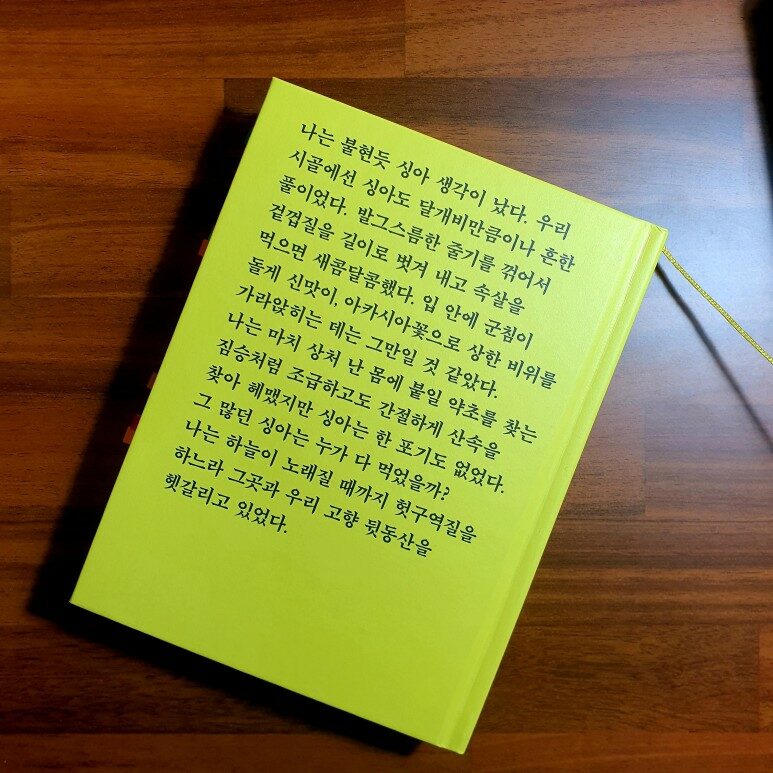 나는 불현듯 싱아 생각이 났다. 우리
시골에선 싱아도 달개비만큼이나 흔한
풀이었다. 발그스름한 줄기를 꺾어서
겉껍질을 길이로 벗겨 내고 속살을
먹으면 새콤달콤했다. 입 안에 군침이
돌게 신맛이, 아카시아꽃으로 상한 비위를
가라앉히는 데는 그만일 것 같았다.
나는 마치 상처 난 몸에 붙일 약초를 찾는
짐승처럼 조급하고도 간절하게 산속을
찾아 헤맸지만 싱아는 한 포기도 없었다.
그 많던 싱아는 누가 다 먹었을까?
나는 하늘이 노래질 때까지 헛구역질을
하느라 그곳과 우리 고향 뒷동산을
헷갈리고 있었다.